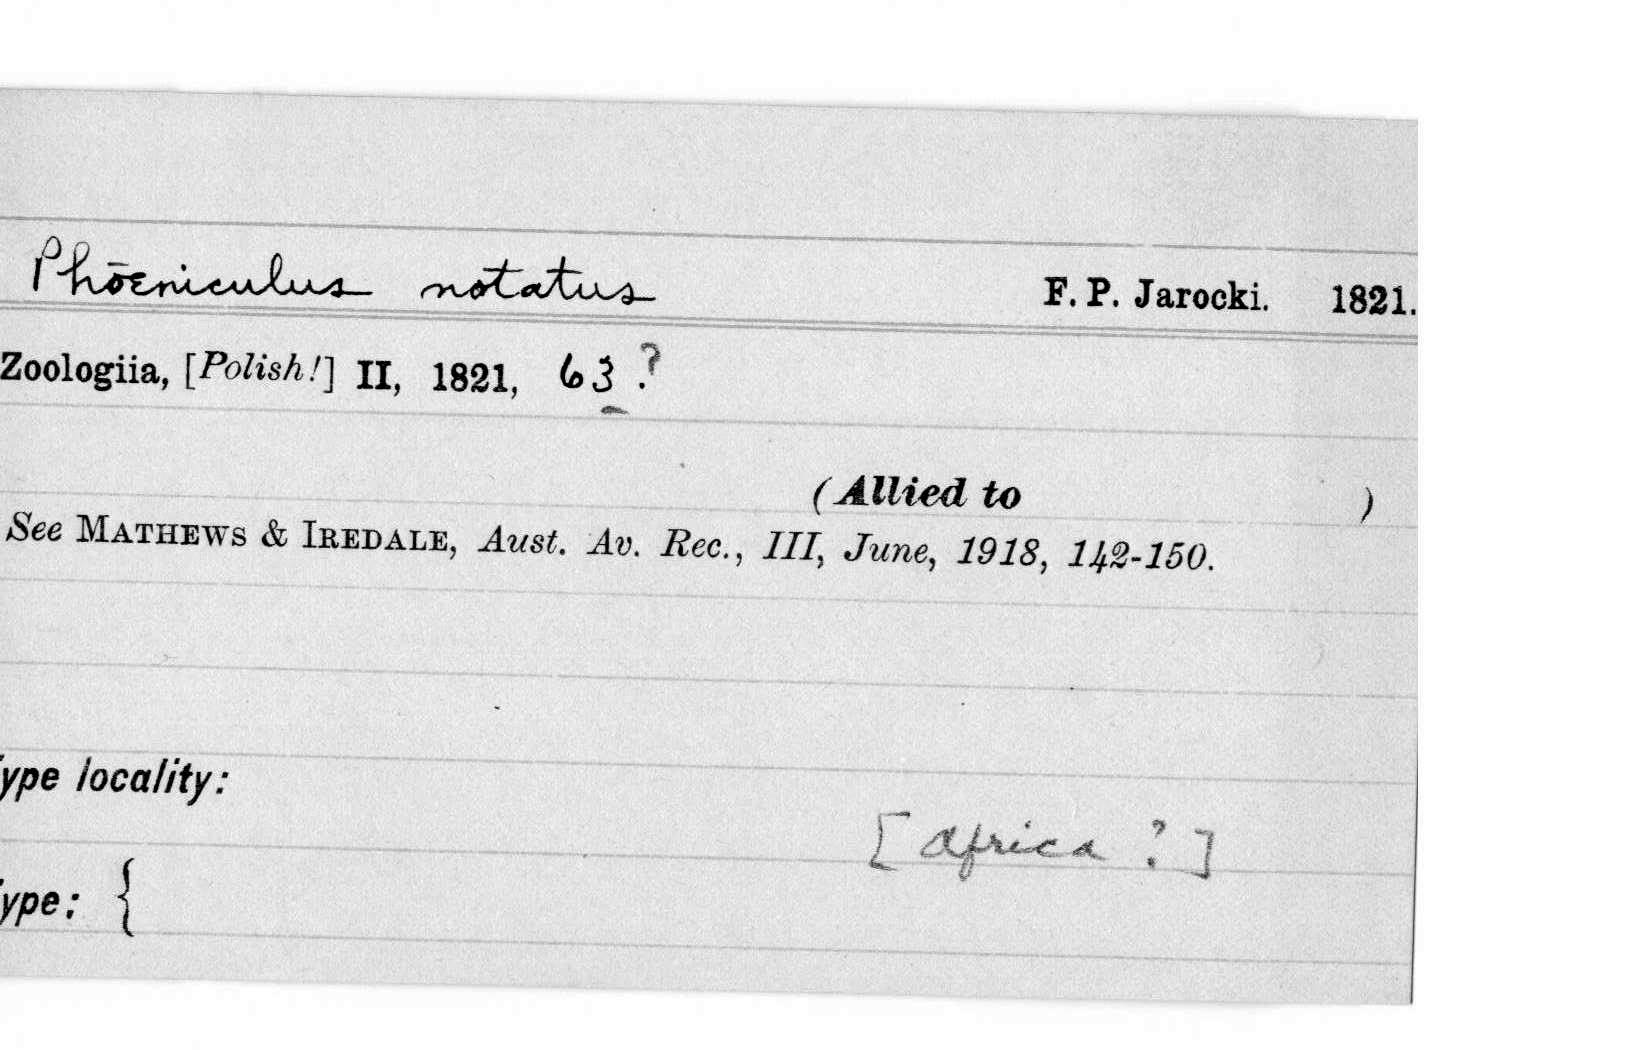 Phœniculus notatus F. P. Jarocki. 1821.
Zoologiia, [Polish!] II, 1821, 63 ?
(Allied to )
See MATHEWS & IREDALE, Aust. Av. Rec., III, June, 1918, 142-150.
ype locality:
[Africa ?]
ype: {